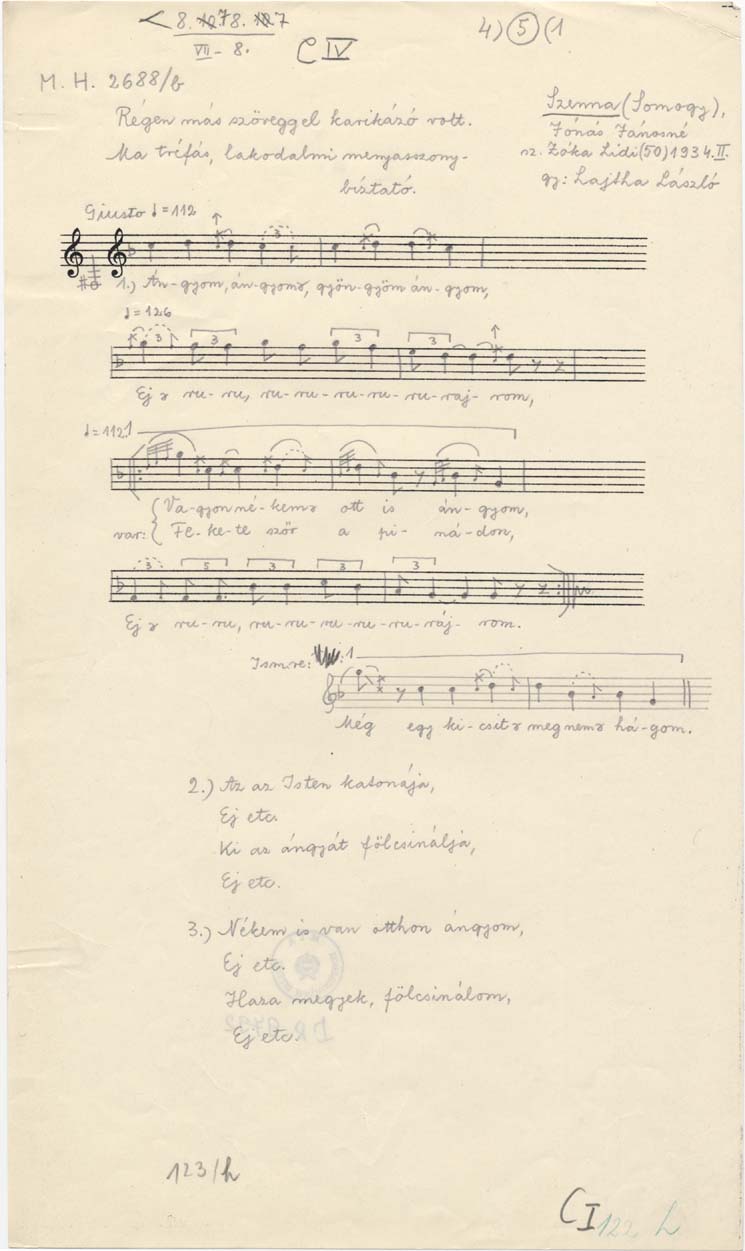 4) 5 (1
VII - 8.
C IV
M. H. 2688/b
Szenna (Somogy),
Régen más szöveggel karikázó volt.
Jónás Jánosné
Ma tréfás, lakodalmi menyasszony-
sz. Zóka Lidi (50) 1934. II.
biztató.
gy: Lajtha László
Giusto ♩ = 112
3
1.) Án-gyom, án-gyomə, gyön-gyöm án-gyom,
♩ = 126
3 3 3 3
Ej ə ru-ru, ru-ru-ru-ru-ru-raj-rom,
♩ = 112 1
Va-gyon né-kemə ott is án-gyom,
var: Fe-ke-te ször a pi-ná-don,
3 5 3 3 3
Ej ə ru-ru, ru-ru-ru-ru-ru-ráj-rom.
Ism.re: 1
Még egy ki-csitə meg nemə há-gom.
2.) Az az Isten katonája,
Ej etc.
Ki az ángyát fölcsinálja,
Ej etc.
3.) Nékem is van otthon ángyom,
Ej etc.
Haza megyek, fölcsinálom,
Ej etc.
123/h
C I 122 L